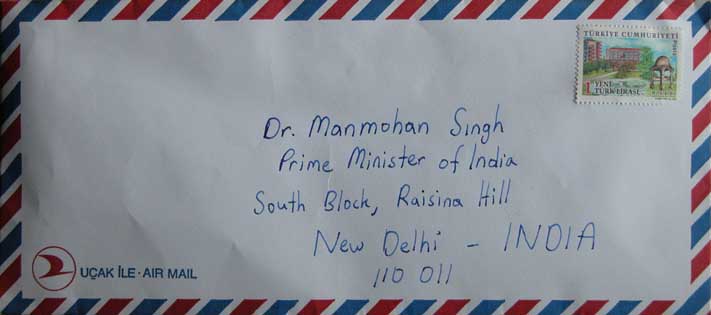 TÜRKİYE CUMHURİYETİ
1 YENİ
TÜRK LİRASI
Dr. Manmohan Singh
Prime Minister of India
South Block, Raisina Hill
New Delhi - INDIA
110 011
UÇAK İLE · AIR MAIL